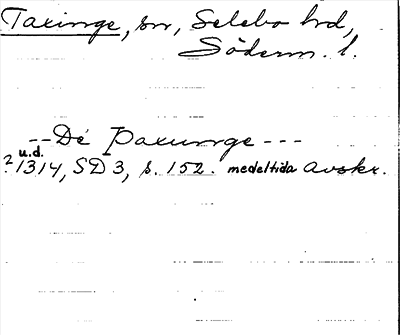 Taxinge, sn, Selebo hd,
Söderm. l.
--De Þaxunge---
u.d.
? 1314, SD 3, s. 152. medeltida avskr.